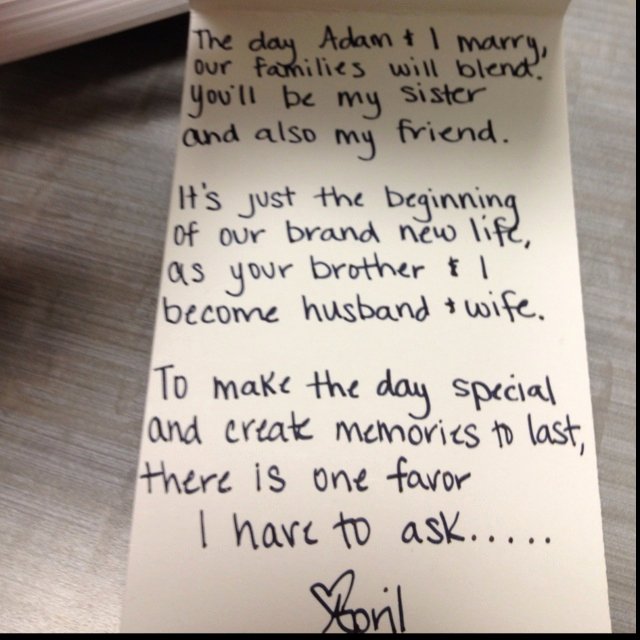 The day Adam & I marry,
our families will blend.
You'll be my sister
and also my friend.
It's just the beginning
of our brand new life,
as your brother & I
become husband & wife.
To make the day special
and create memories to last,
there is one favor
I have to ask.....
♡April